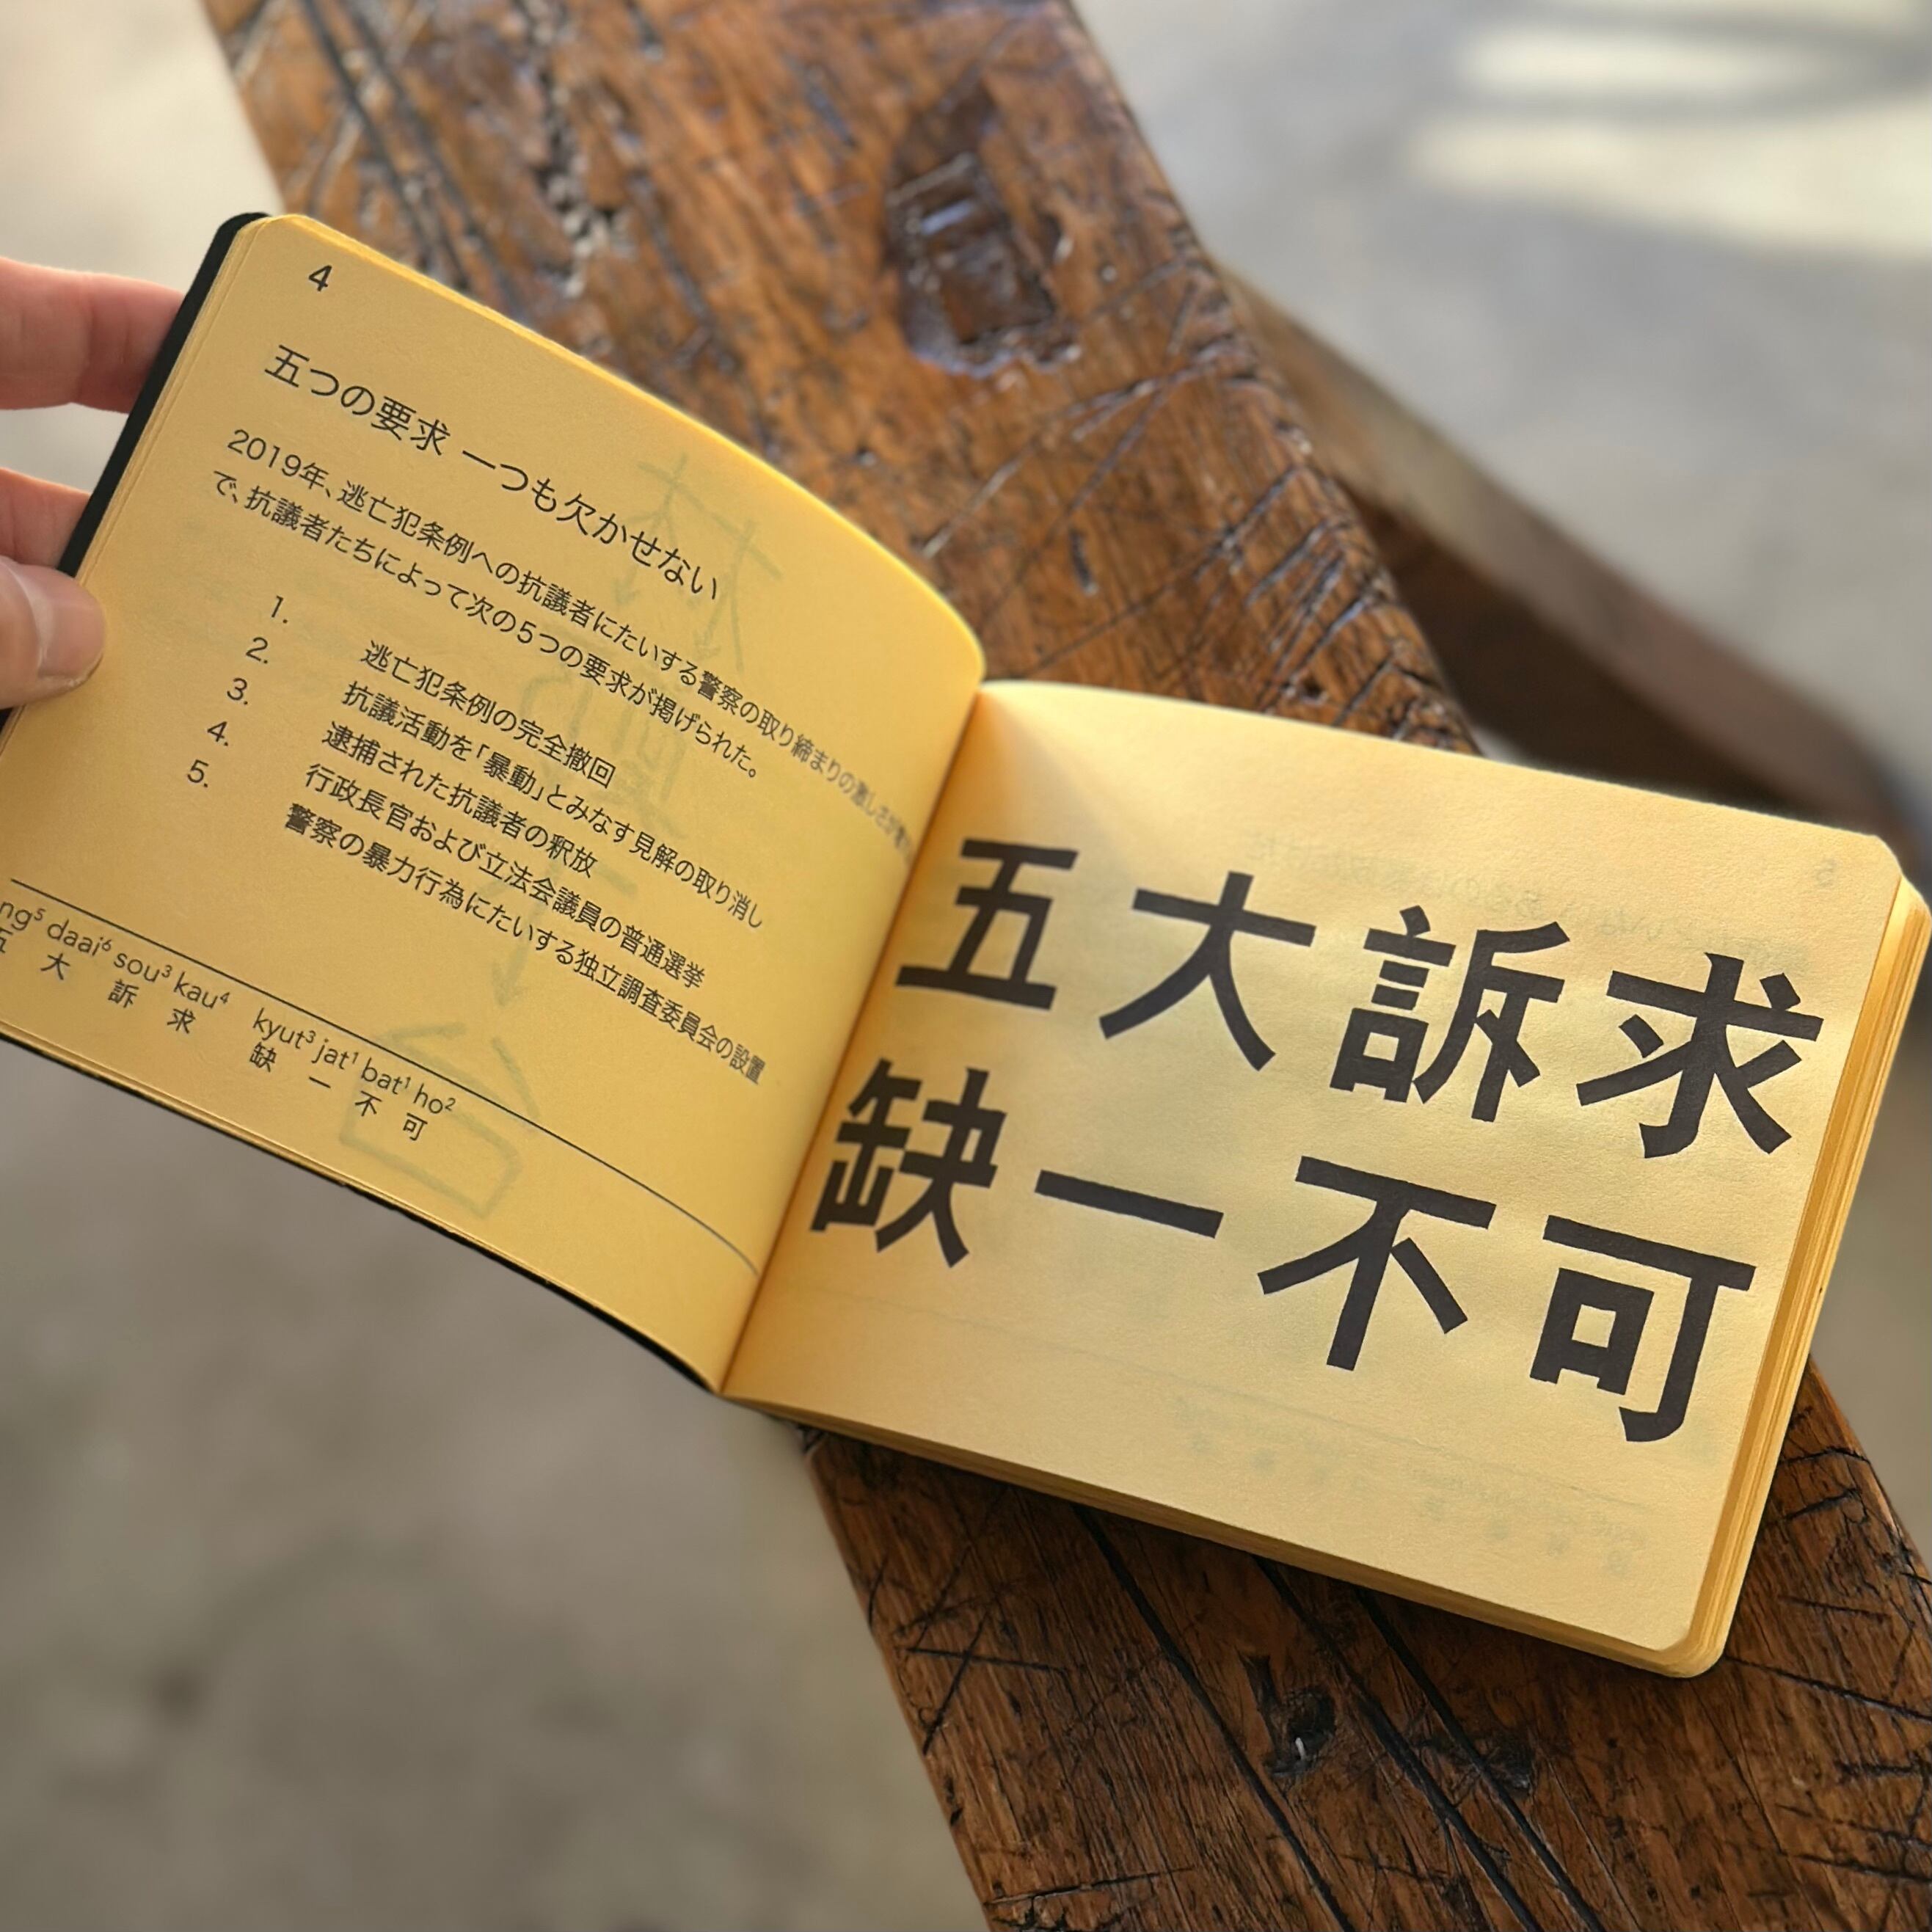 4
五つの要求 一つも欠かせない
2019年、逃亡犯条例への抗議者にたいする警察の取り締まりの激しさが
で、抗議者たちによって次の5つの要求が掲げられた。
1. 逃亡犯条例の完全撤回
2. 抗議活動を「暴動」とみなす見解の取り消し
3. 逮捕された抗議者の釈放
4. 行政長官および立法会議員の普通選挙
5. 警察の暴力行為にたいする独立調査委員会の設置
ng⁵ daai⁶ sou³ kau⁴ kyut³ jat¹ bat¹ ho²
五 大 訴 求 缺 一 不 可
五大訴求
缺一不可